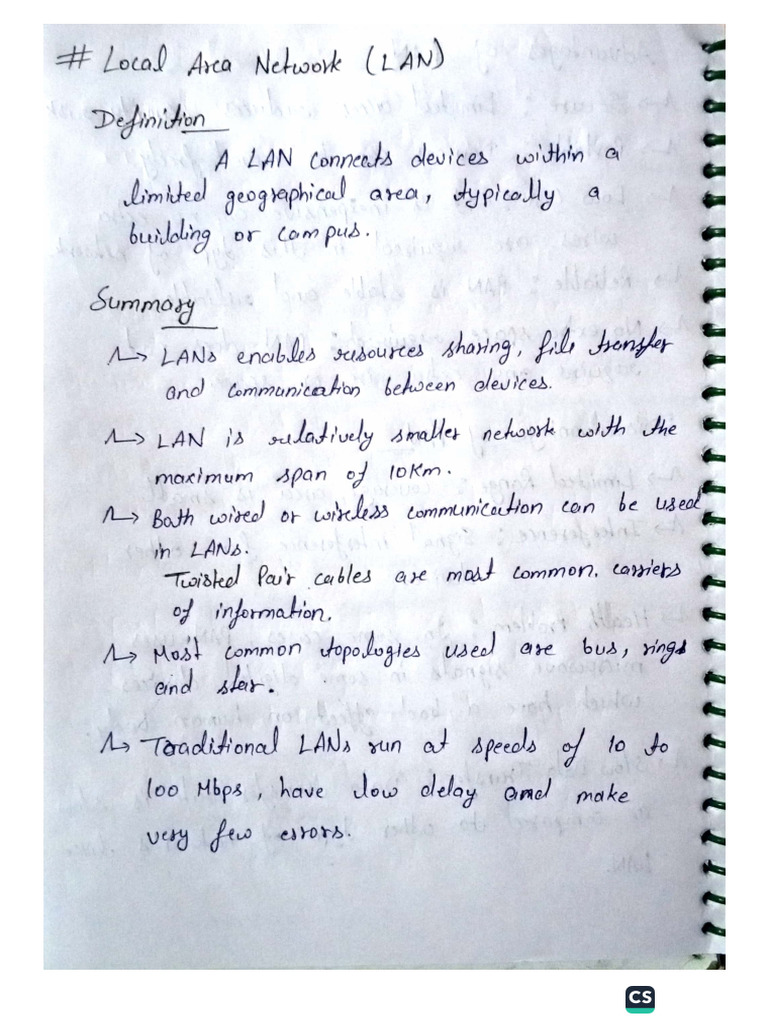 # Local Area Network (LAN)
Definition
A LAN connects devices within a
limited geographical area, typically a
building or campus.
Summary
↳ LANs enables resources sharing, file transfer
and communication between devices.
↳ LAN is relatively smaller network with the
maximum span of 10Km.
↳ Both wired or wireless communication can be used
in LANs.
Twisted Pair cables are most common carriers
of information.
↳ Most common topologies used are bus, rings
and star.
↳ Traditional LANs run at speeds of 10 to
100 Mbps, have low delay and make
very few errors.
CS